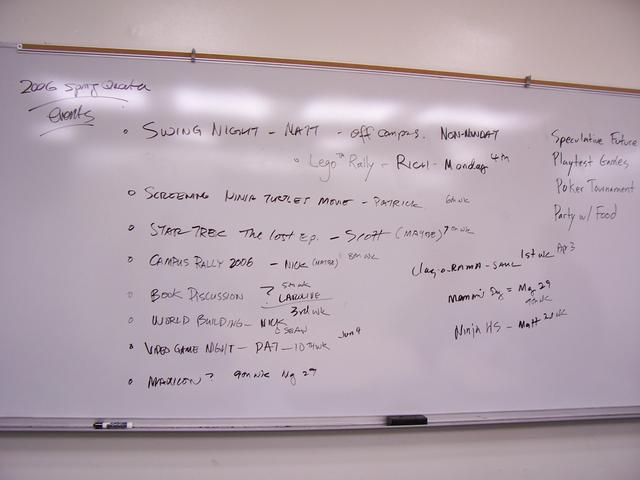 2006 Spring Quarter
events
• SWING NIGHT - MATT - off campus. NON-MONDAY
• Lego™ Rally - RICH - Monday 4th
• SCREENING NINJA TURTLES MOVIE - PATRICK 6th wk
• STAR TREK The lost Ep. - Scott (MAYBE) 7th wk
• CAMPUS RALLY 2006 - NICK (MAYBE) 8th wk
• BOOK DISCUSSION ? 5th wk CAROLINE
• WORLD BUILDING - NICK 3rd wk
& SEAN
• VIDEO GAME NIGHT - DAT - 10th wk Jun 9
• ? 9th wk 29
Speculative Future
Playtest Games
Poker Tournament
Party w/ Food
1st wk Apr 3
Day = May 29
9th wk
Ninja HS - Matt 2nd wk